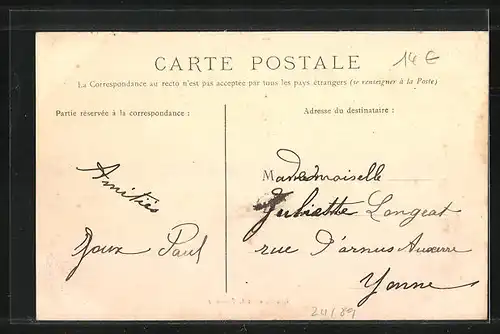 CARTE POSTALE
14€
La Correspondance au recto n'est pas acceptée par tous les pays étrangers (se renseigner à la Poste)
Partie réservée à la correspondance :
Adresse du destinataire :
Mademoiselle
Amitiés
Juliette Longeat
Paul
rue Auxerre
Yonne
24/89